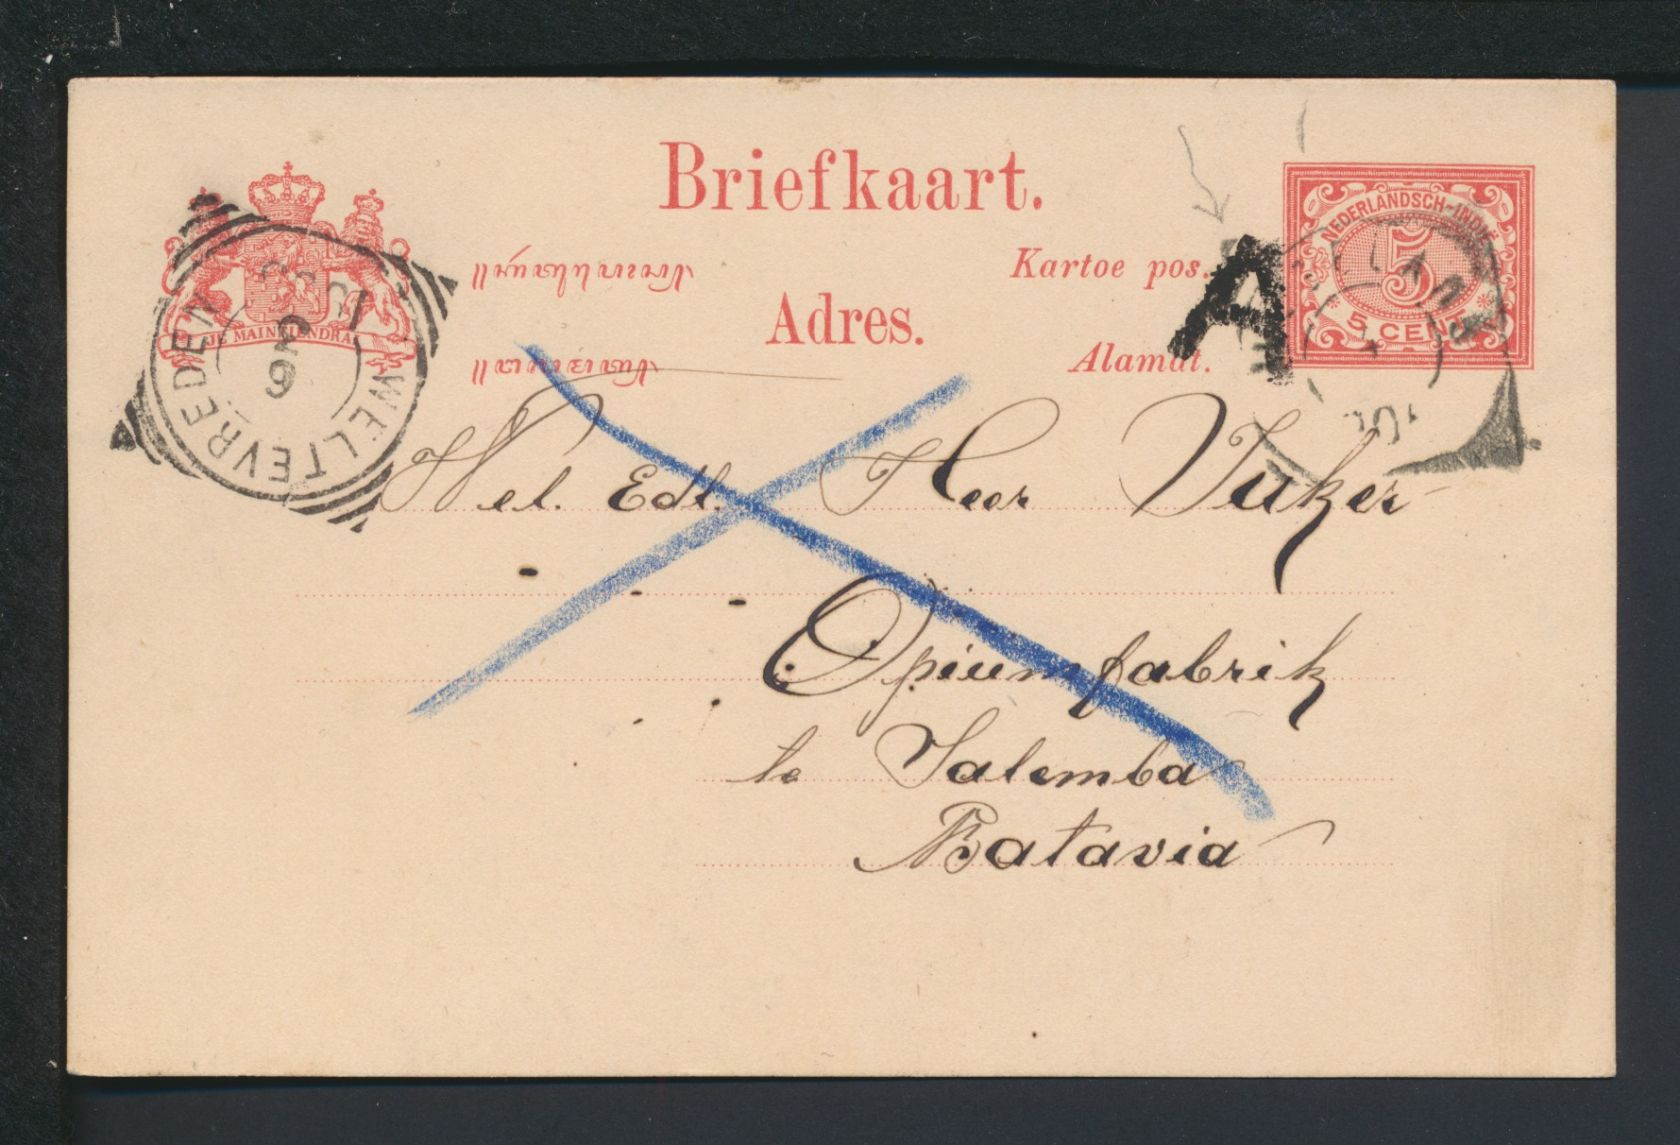 Briefkaart.
Kartoe pos.
Adres.
Alamat.
NEDERLANDSCH-INDIË
5
5 CENT
JE MAINTIENDRAI
WELTEVREDEN
A
Wel. Edl. Heer Vuker
Opiumfabrik
te Salemba
Batavia